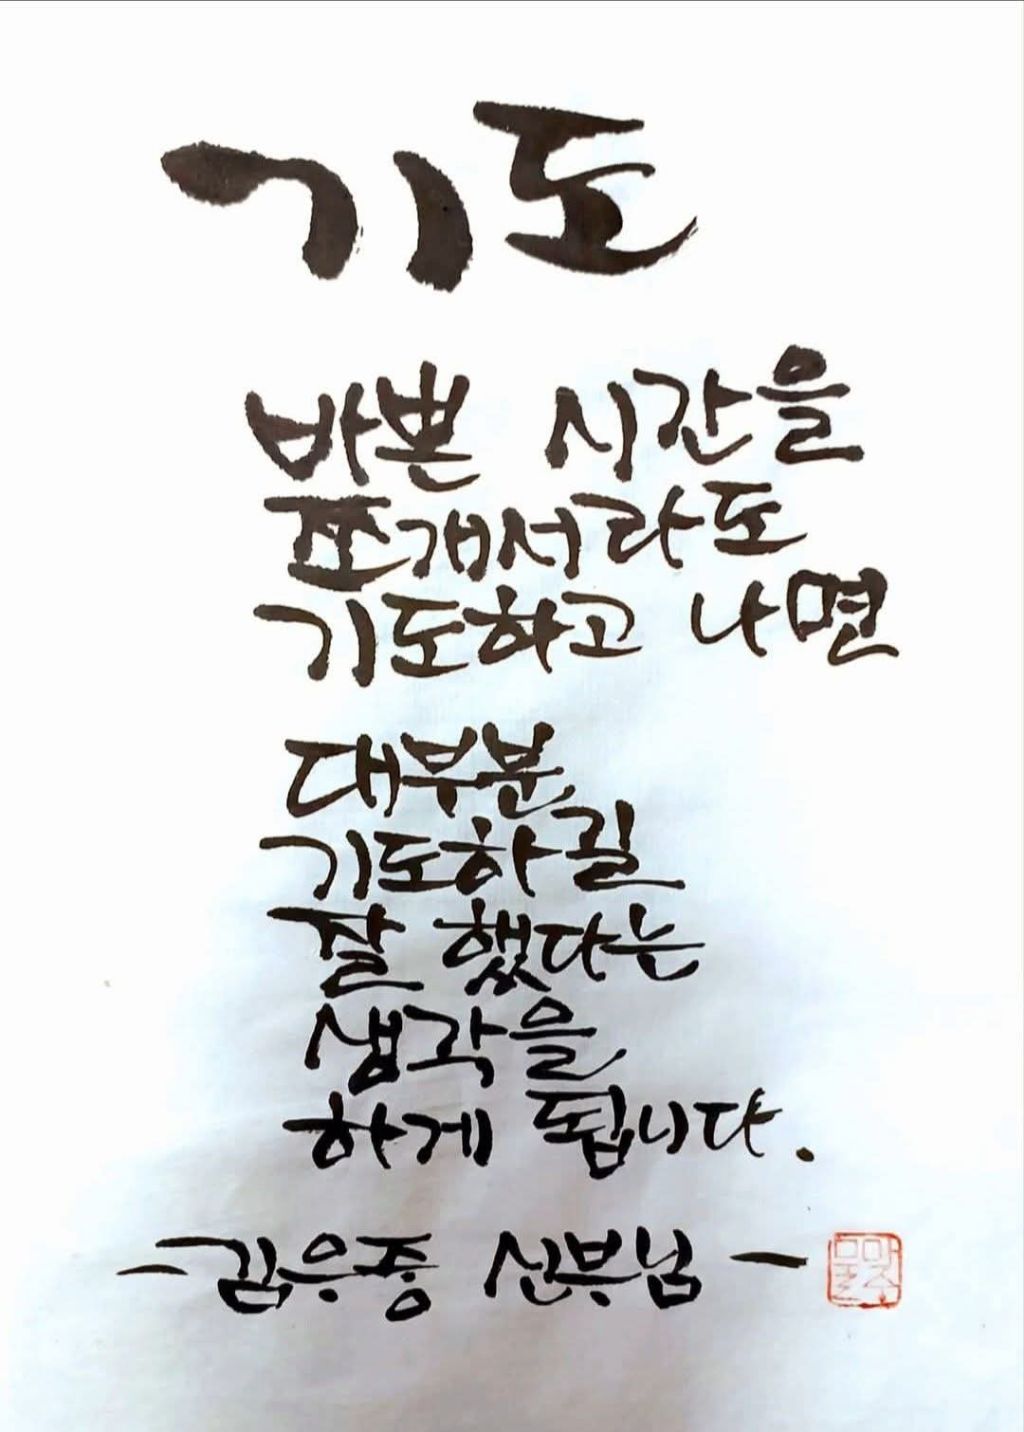 기도
바쁜 시간을
쪼개서라도
기도하고 나면
대부분
기도하길
잘 했다는
생각을
하게 됩니다.
- 김우중 신부님 -